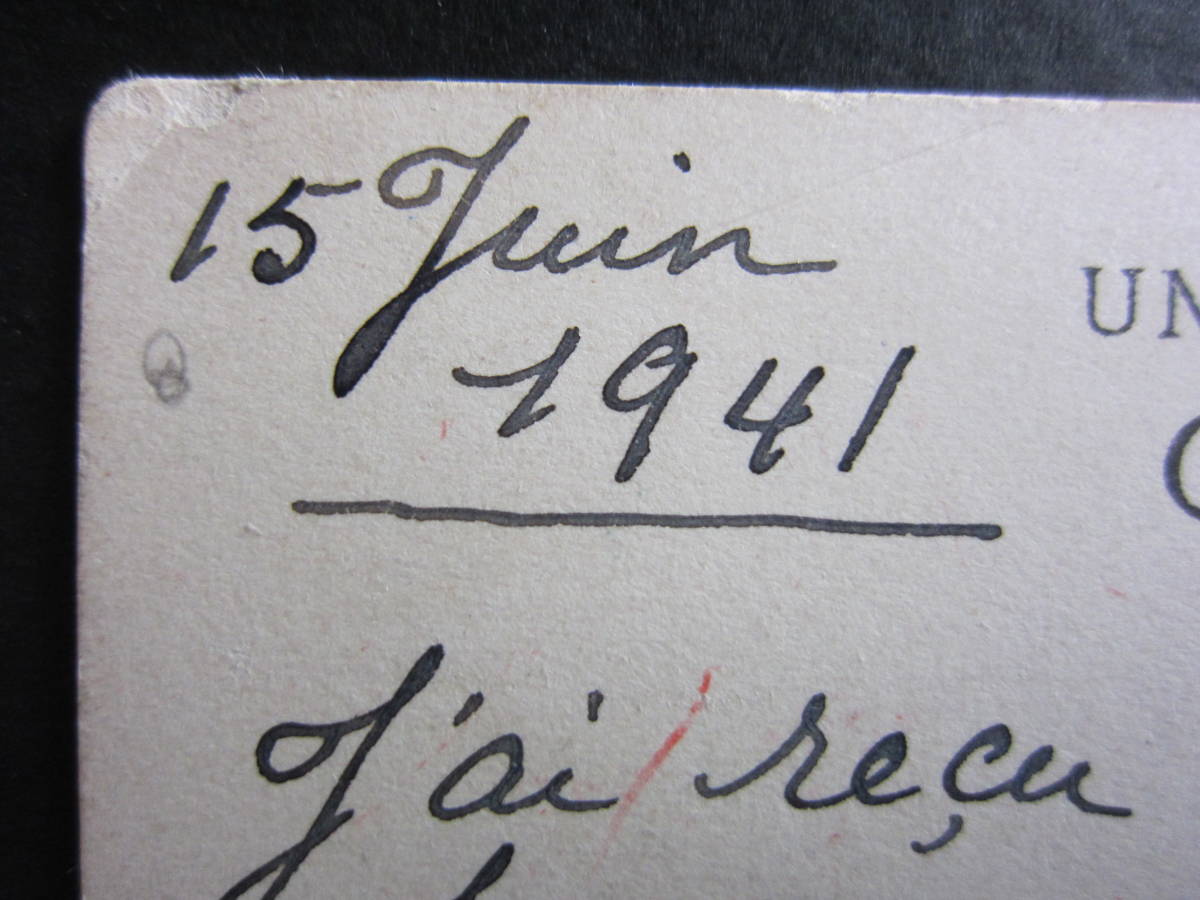 15 Juin
1941
UN
J'ai reçu